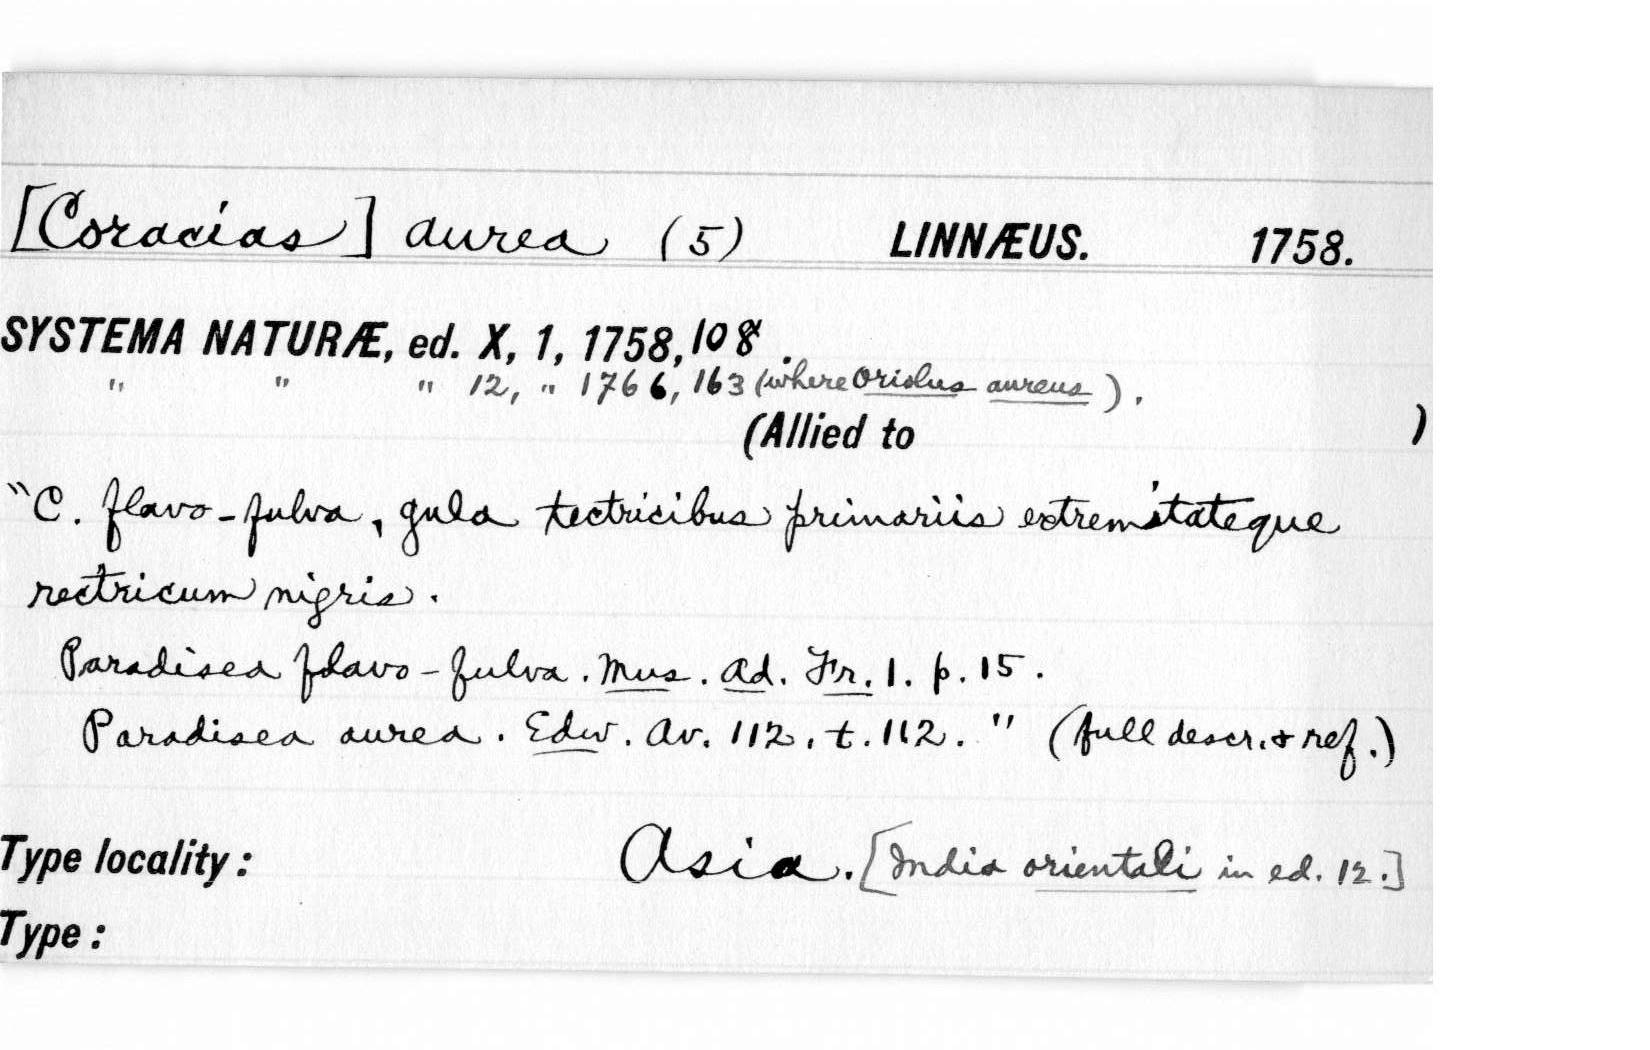 [Coracias] aurea (5) LINNÆUS. 1758.
SYSTEMA NATURÆ, ed. X, 1, 1758, 108.
" " " 12, " 1766, 163 (where Oriolus aureus).
(Allied to )
"C. flavo-fulva, gula tectricibus primariis extremitateque
rectricum nigris.
Paradisea flavo-fulva. Mus. Ad. Fr. 1. p. 15.
Paradisea aurea. Edw. Av. 112. t. 112." (full descr. & ref.)
Type locality: Asia. [India orientali in ed. 12.]
Type: